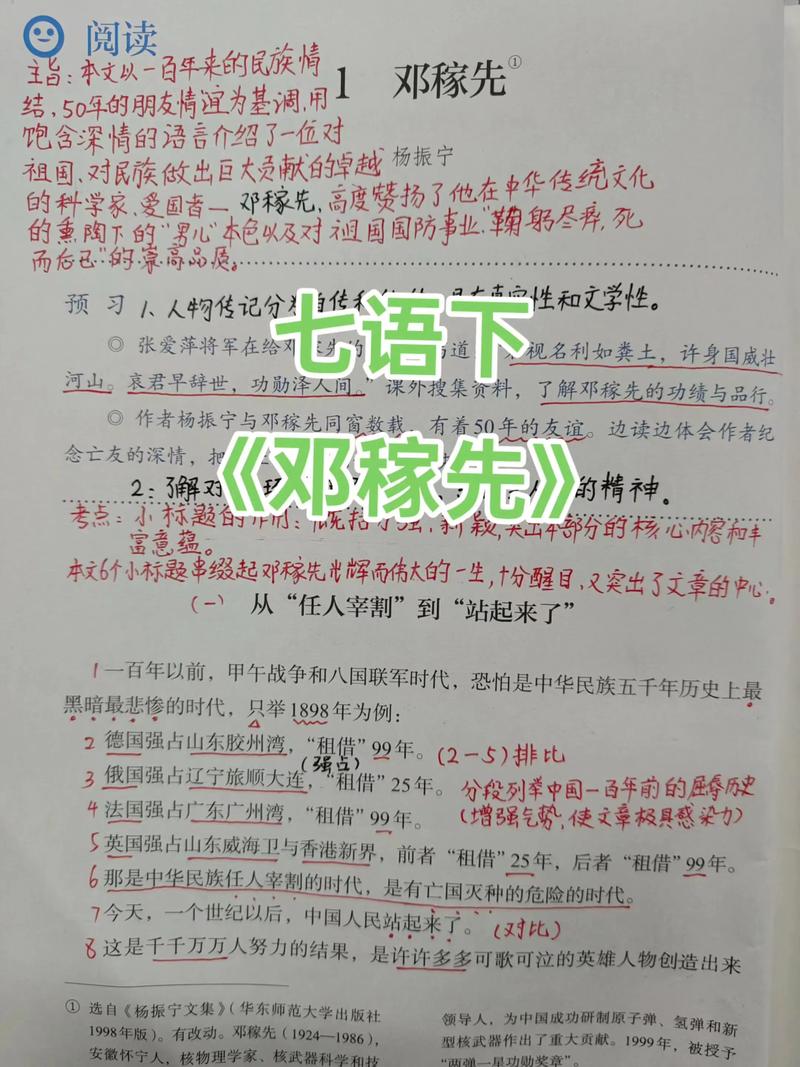 阅读
主旨:本文以一百年来的民族情
结,50年的朋友情谊为基调,用
饱含深情的语言介绍了一位对
祖国、对民族做出巨大贡献的卓越
的科学家、爱国者—邓稼先,高度赞扬了他在中华传统文化
的熏陶下的“男儿”本色以及对祖国国防事业“鞠躬尽瘁,死
而后已”的崇高品质。
1 邓稼先①
杨振宁
预习 1、人物传记分 自传和 真实性和文学性。
◎ 张爱萍将军在给邓稼先的 道 视名利如粪土,许身国威壮
河山。哀君早辞世,功勋泽人间。”课外搜集资料,了解邓稼先的功绩与品行。
七语下
◎ 作者杨振宁与邓稼先同窗数载,有着50年的友谊。边读边体会作者纪
念亡友的深情,把
《邓稼先》
2:了解对 的精神。
考点:小标题的作用:概括 新颖,突出本部分的核心内容和丰
富意蕴。
本文6个小标题串缀起邓稼先光辉而伟大的一生,十分醒目,又突出了文章的中心。
(一) 从“任人宰割”到“站起来了”
1 一百年以前,甲午战争和八国联军时代,恐怕是中华民族五千年历史上最
黑暗最悲惨的时代,只举1898年为例:
2 德国强占山东胶州湾,“租借”99年。(2-5)排比
(强占)
3 俄国强占辽宁旅顺大连,“租借”25年。 分段列举中国一百年前的屈辱历史
4 法国强占广东广州湾,“租借”99年。 (增强气势,使文章极具感染力)
5 英国强占山东威海卫与香港新界,前者“租借”25年,后者“租借”99年。
6 那是中华民族任人宰割的时代,是有亡国灭种的危险的时代。
7 今天,一个世纪以后,中国人民站起来了。(对比)
8 这是千千万万人努力的结果,是许许多多可歌可泣的英雄人物创造出来
① 选自《杨振宁文集》(华东师范大学出版社
1998年版)。有改动。邓稼先(1924—1986),
安徽怀宁人,核物理学家、核武器科学和技
领导人,为中国成功研制原子弹、氢弹和新
型核武器作出了重大贡献。1999年,被授予
“两弹一星功勋奖章”。